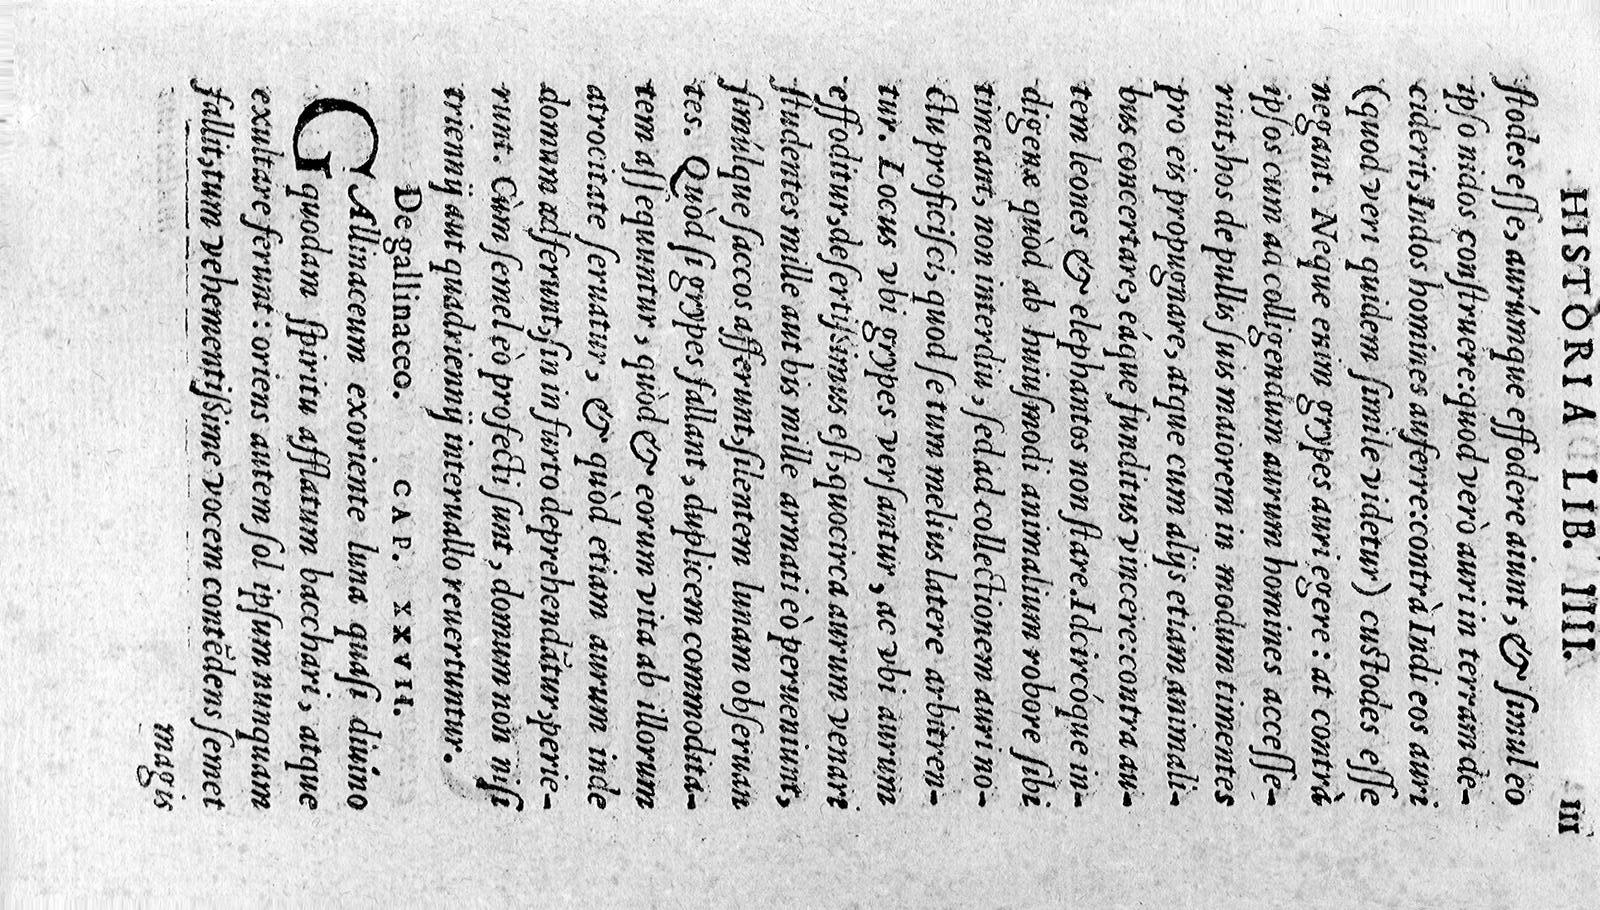 HISTORIA LIB. IIII. III
ſtodes eſſe, aurúmque effodere aiunt, & ſimul eo
ipſo nidos conſtruere: quod verò auri in terram de-
ciderit, Indos homines auferre: contrà Indi eos auri
(quod veri quidem ſimile videtur) cuſtodes eſſe
negant. Neque enim grypes auri egere: at contrà
ipſos cum ad colligendum aurum homines acceſſe-
rint, hos de pullis ſuis maiorem in modum timentes
pro eis propugnare, atque cum alijs etiam animali-
bus concertare, eáque funditus vincere: contra au-
tem leones & elephantos non ſtare. Idcircóque in-
digenæ quòd ab huiuſmodi animalium robore ſibi
timeant, non interdiu, ſed ad collectionem auri no-
ctu proficiſci, quod ſe tum melius latere arbitren-
tur. Locus vbi grypes verſantur, ac vbi aurum
effoditur, deſertiſsimus eſt, quocirca aurum venari
ſtudentes mille aut bis mille armati eò perueniunt,
ſimúlque ſaccos afferunt, ſilentem lunam obſeruan
tes. Quòd ſi grypes fallant, duplicem commodita-
tem aſſequuntur, quòd & eorum vita ab illorum
atrocitate ſeruatur, & quòd etiam aurum inde
domum adferunt, ſin in furto deprehendãtur, perie-
runt. Cùm ſemel eò profecti ſunt, domum non niſi
triennij aut quadriennij interuallo reuertuntur.
De gallinaceo. CAP. XXVII.
GAllinaceum exoriente luna quaſi diuino
quodam ſpiritu afflatum bacchari, atque
exultare ferunt: oriens autem ſol ipſum nunquam
fallit, tum vehementiſsime vocem contẽdens ſemet
magis